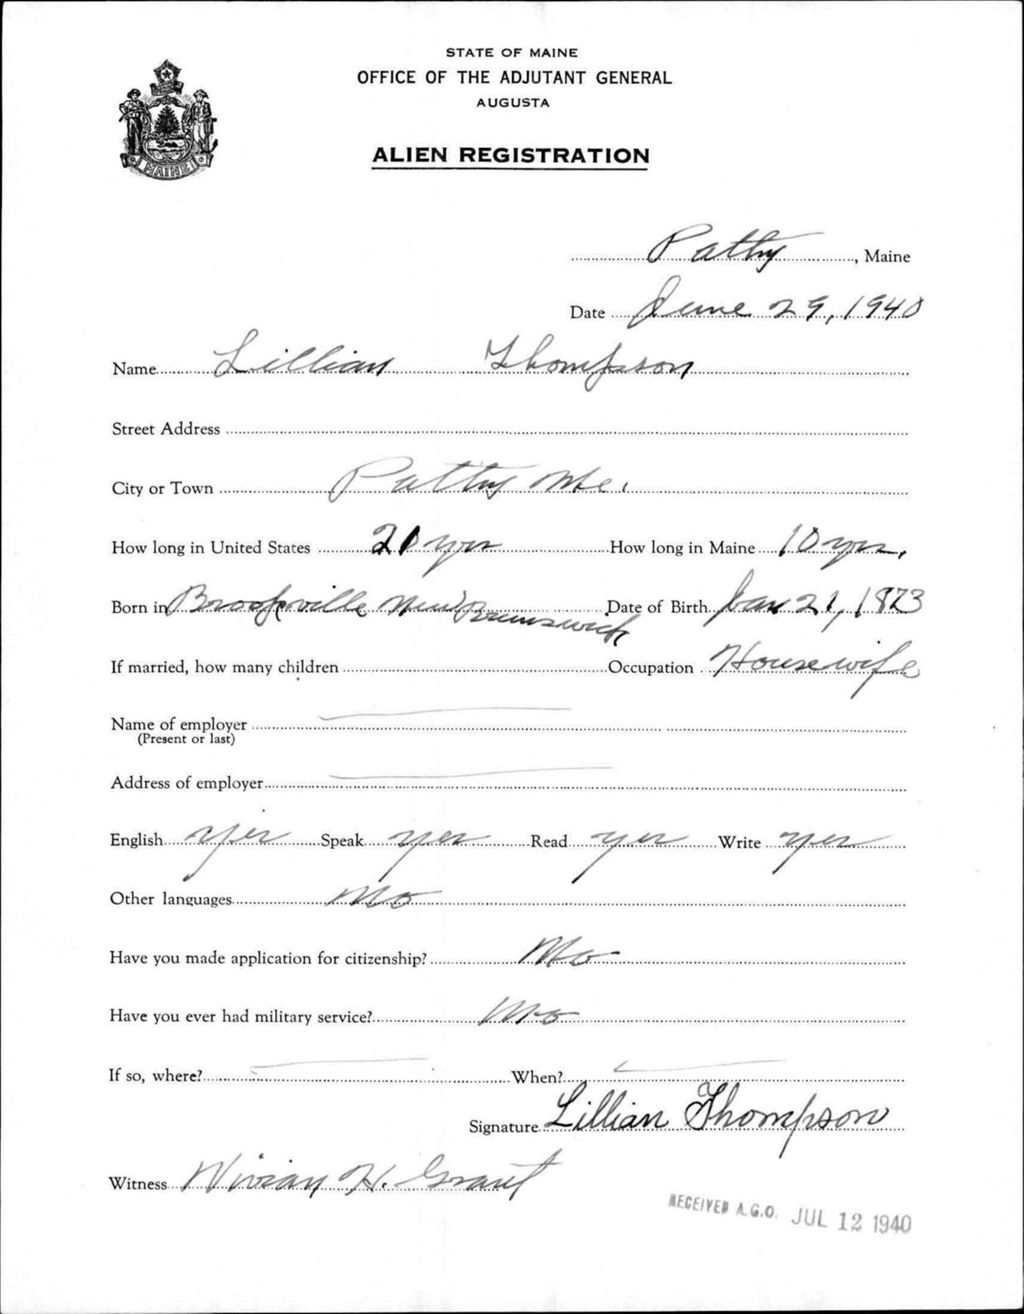 STATE OF MAINE
OFFICE OF THE ADJUTANT GENERAL
AUGUSTA
ALIEN REGISTRATION
MAINE
Patty, Maine
Date June 29, 1940
Name Lillian Thompson
Street Address
City or Town Patty Me.
How long in United States yrs How long in Maine 10 yrs.
Born in Brooksville New Brunswick Date of Birth Jan 21, 1873
If married, how many children Occupation Housewife
Name of employer
(Present or last)
Address of employer
English yes Speak yes Read yes Write yes
Other languages No
Have you made application for citizenship? No
Have you ever had military service? No
If so, where? When?
Signature Lillian Thompson
Witness Vivian H. Grant
RECEIVED A.G.O. JUL 12 1940